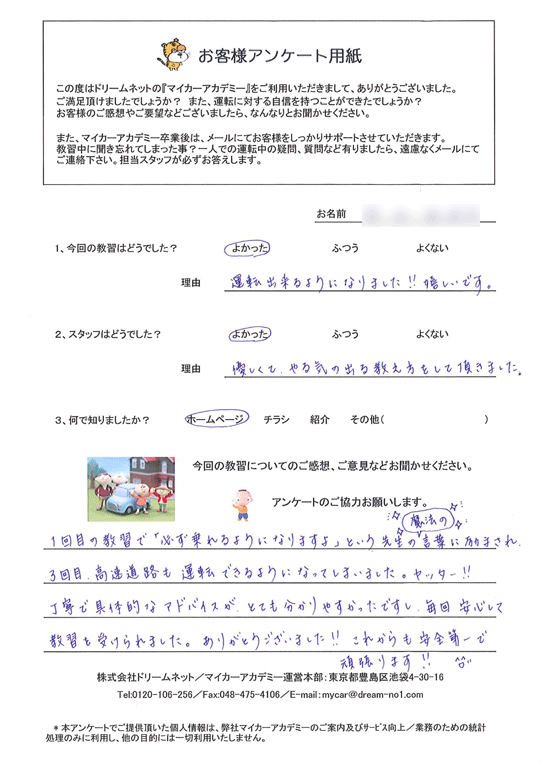 お客様アンケート用紙
この度はドリームネットの『マイカーアカデミー』をご利用いただきまして、ありがとうございました。
ご満足頂けましたでしょうか？ また、運転に対する自信を持つことができたでしょうか？
お客様のご感想やご要望などございましたら、なんなりとお聞かせください。
また、マイカーアカデミー卒業後は、メールにてお客様をしっかりサポートさせていただきます。
教習中に聞き忘れてしまった事？一人での運転中の疑問、質問など有りましたら、遠慮なくメールにて
ご連絡下さい。担当スタッフが必ずお答えします。
お名前
1、今回の教習はどうでした？ よかった ふつう よくない
理由 運転出来るようになりました!! 嬉しいです。
2、スタッフはどうでした？ よかった ふつう よくない
理由 優しくて、やる気の出る教え方をして頂きました。
3、何で知りましたか？ ホームページ チラシ 紹介 その他( )
今回の教習についてのご感想、ご意見などお聞かせください。
アンケートのご協力お願いします。
魔法の
1回目の教習で「必ず乗れるようになりますよ」という先生の言葉に励まされ、
3回目、高速道路も運転できるようになってしまいました。ヤッター!!
丁寧で具体的なアドバイスが、とても分かりやすかったですし、毎回安心して
教習を受けられました。ありがとうございました!! これからも安全第一で
頑張ります!!
株式会社ドリームネット／マイカーアカデミー運営本部：東京都豊島区池袋4-30-16
Tel:0120-106-256／Fax:048-475-4106／E-mail：mycar@dream-no1.com
＊本アンケートでご提供頂いた個人情報は、弊社マイカーアカデミーのご案内及びサービス向上／業務のための統計
処理のみに利用し、他の目的には一切利用いたしません。